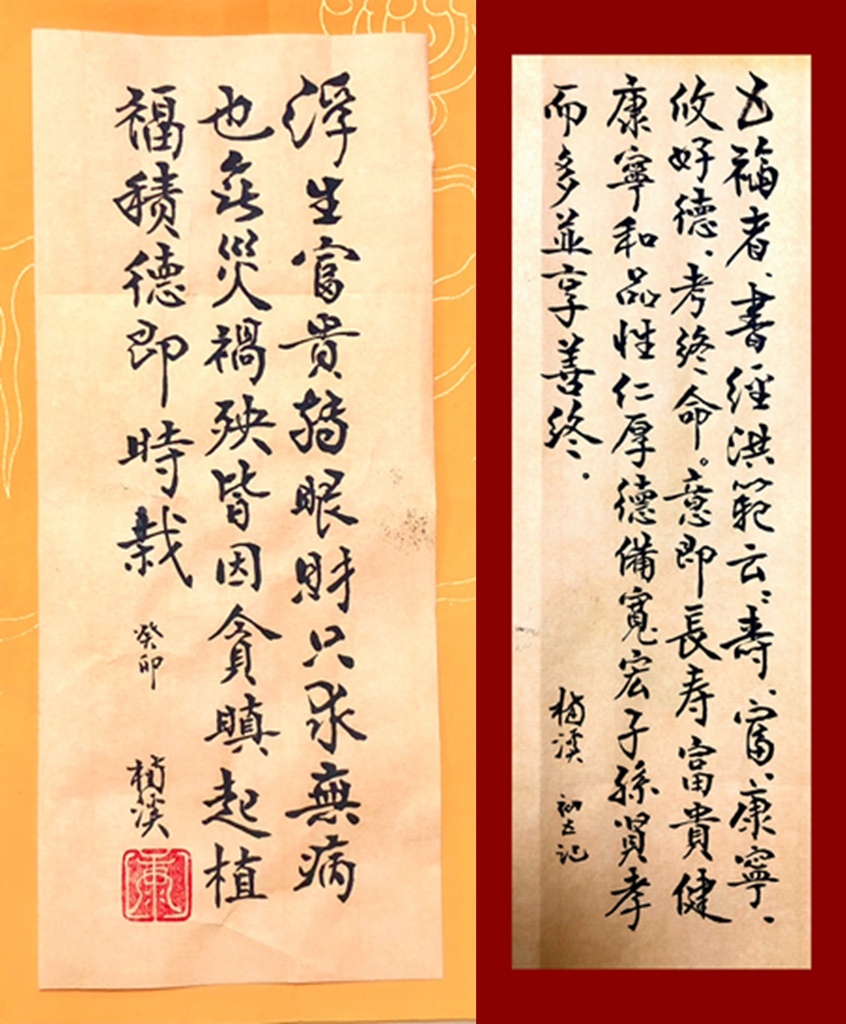 浮生富貴轉眼財只求無病
也無災禍殃皆因貪瞋起植
福積德即時栽
癸卯
楠溪
五福者、書經洪範云：壽、富、康寧、
攸好德、考終命。意即長寿富貴健
康寧和品性仁厚德備寬宏子孫賢孝
而多並享善終．
楠溪
記